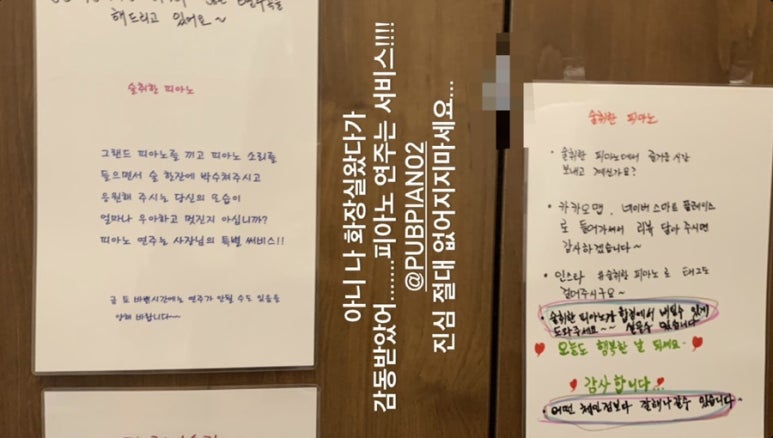 해드리고 있어요~
술취한 피아노
그랜드 피아노를 끼고 피아노 소리를
들으면서 술 한잔에 박수쳐주시고
응원해 주시는 당신의 모습이
얼마나 우아하고 멋진지 아십니까?
피아노 연주는 사장님의 특별 써비스!!
금 토 바쁜시간에는 연주가 안될 수도 있음을
양해 바랍니다~
아니 나 화장실왔다가
감동받았어.......피아노 연주는 서비스!!!!
@PUBPIANO2
진심 절대 없어지지마세요...
술취한 피아노
• 술취한 피아노에서 즐거운 시간
보내고 계신가요?
• 카카오맵, 네이버 스마트 플레이스
로 들어가셔서 리뷰 달아 주시면
감사하겠습니다~
• 인스타 #술취한피아노 로 태그도
걸어주시구요~
• 술취한 피아노가 합정에서 버틸수 있게
도와주세요~~ 살을수 있습니다
오늘도 행복한 날 되세요.
감사합니다...
• 어떤 체인점보다 잘해나갈수 있습니다~